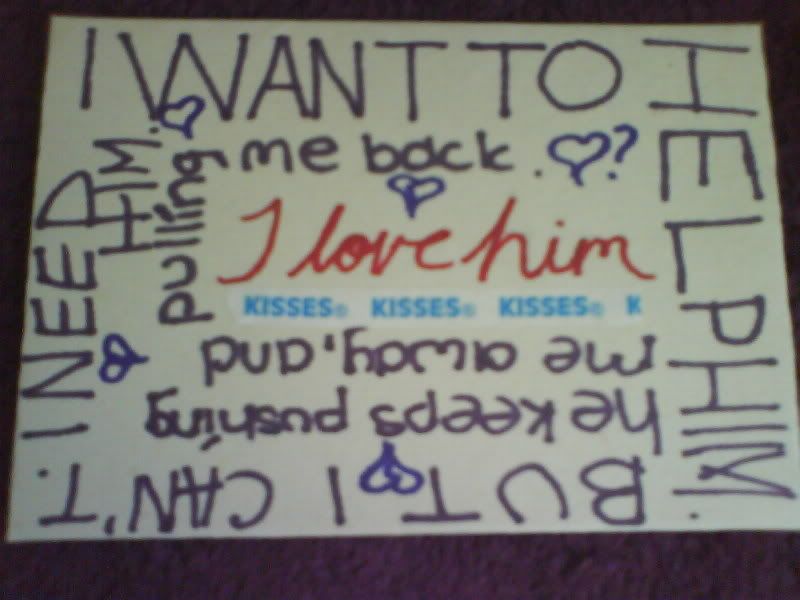 I WANT TO
HELP HIM.
BUT I CAN'T.
I NEED
HIM.
he keeps pushing
me away, and
pulling
me back. ?
I love him
KISSES® KISSES® KISSES® K